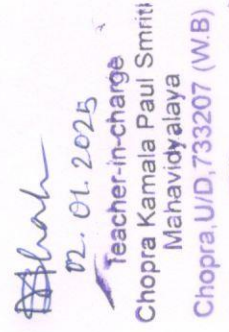 02.01.2025
Teacher-in-charge
Chopra Kamala Paul Smriti
Mahavidyalaya
Chopra, U/D, 733207 (W.B)